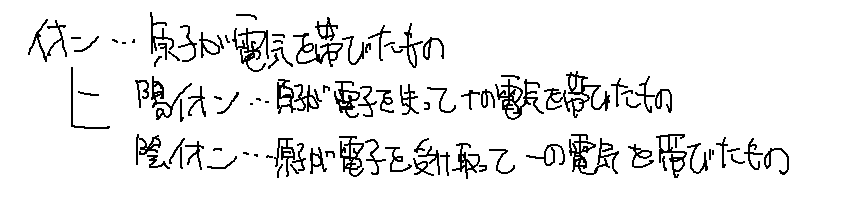 イオン…原子が電気を帯びたもの
陽イオン…原子が電子を失って+の電気を帯びたもの
陰イオン…原子が電子を受け取って-の電気を帯びたもの